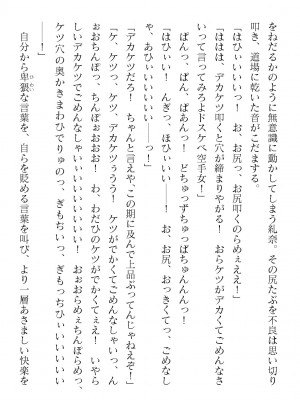 をねだるかのように無意識に動かしてしまう糺奈。その尻たぶを不良は思い切り
叩き、道場に乾いた音がこだまする。
「はひぃいいっ！　お、お尻っ、お尻叩くのらめぇえ！」
「ははは、デカケツ叩くと穴が締まりやがる！　おらケツがデカくてごめんなさ
いって言ってみろよドスケベ空手女！」
ぱんっ、ぱんっ、ぱあんっ！　どちゅっずちゅっぱちゅんんんっ！
「はひぃい！　んぎっ、ほひぃいい！　お、お尻、おっきくてっ、ごめんなし
ゃ、あひぃいいいい――っ！」
「デカケツだろ！　ちゃんと言えや、この期に及んで上品ぶってんじゃねえぞ！」
「ケ、ケツっ、ケツ、デカケツぅうう！　ケツがでかくてごめんなしゃいっ、ん
おおちんぽっ、ちんぽぉおおお！　わ、わだひのケツがでかくてぇえ！　いやら
しいデカケツでごめんなしゃいいいい！　おぉおらめぇちんぽらめっ、
ケツ穴の奥かきまわひでりゅのっ、ぎもぢいっ、ぎもっちひぃいいいいい
――！」
自分から卑猥な言葉を、自らを貶める言葉を叫び、より一層あさましい快楽を
ひわい